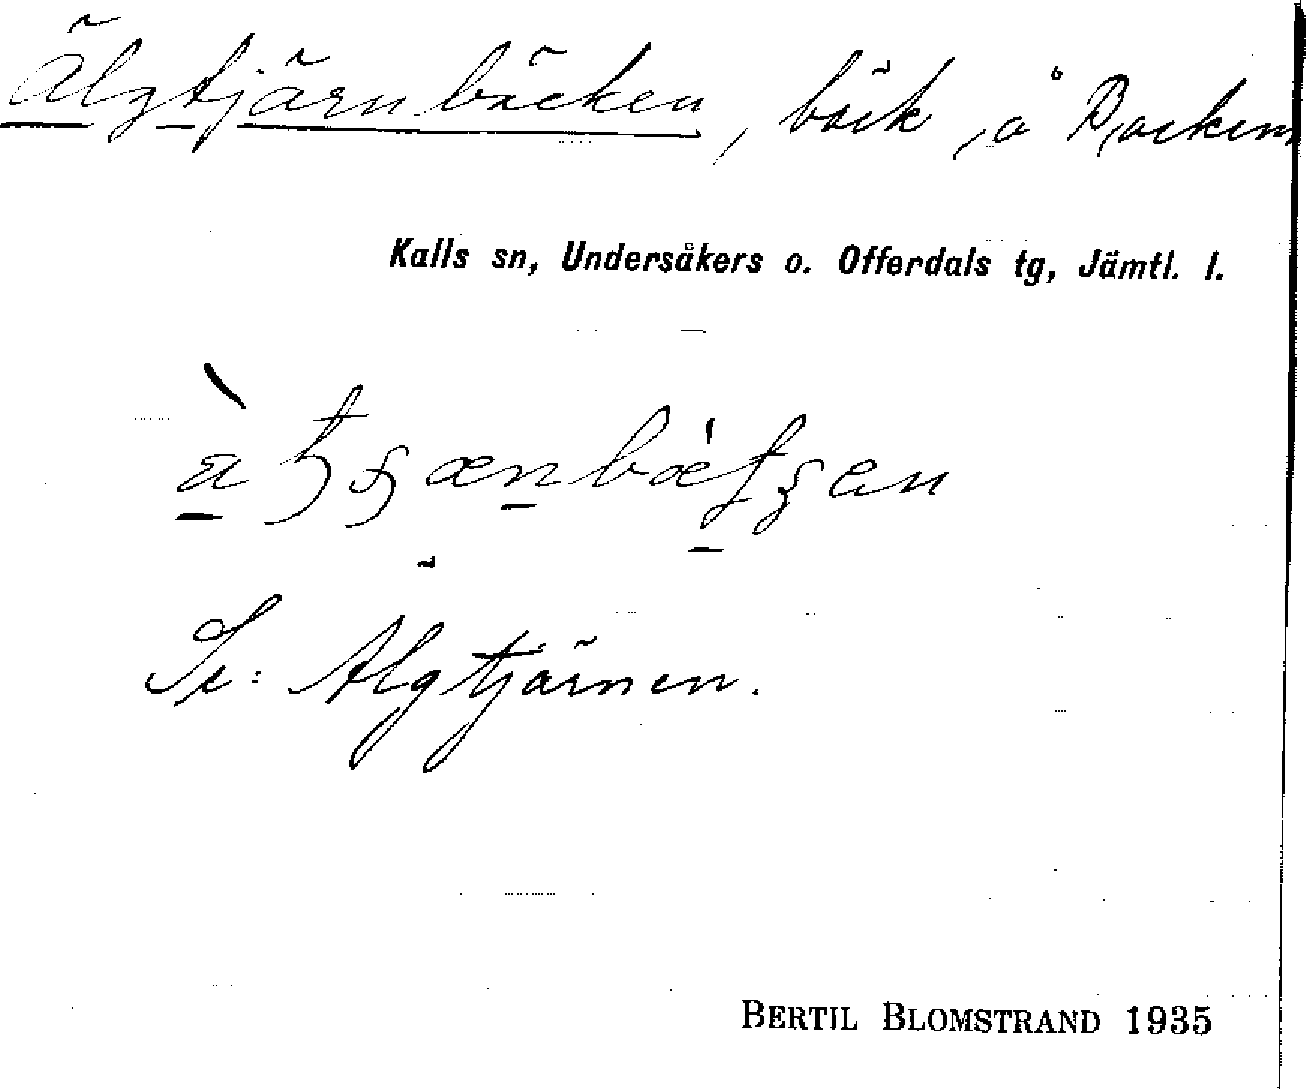 Älgtjärnbäcken, bäck, å Backen
Kalls sn, Undersåkers o. Offerdals tg, Jämtl. l.
Se: Älgtjärnen.
BERTIL BLOMSTRAND 1935